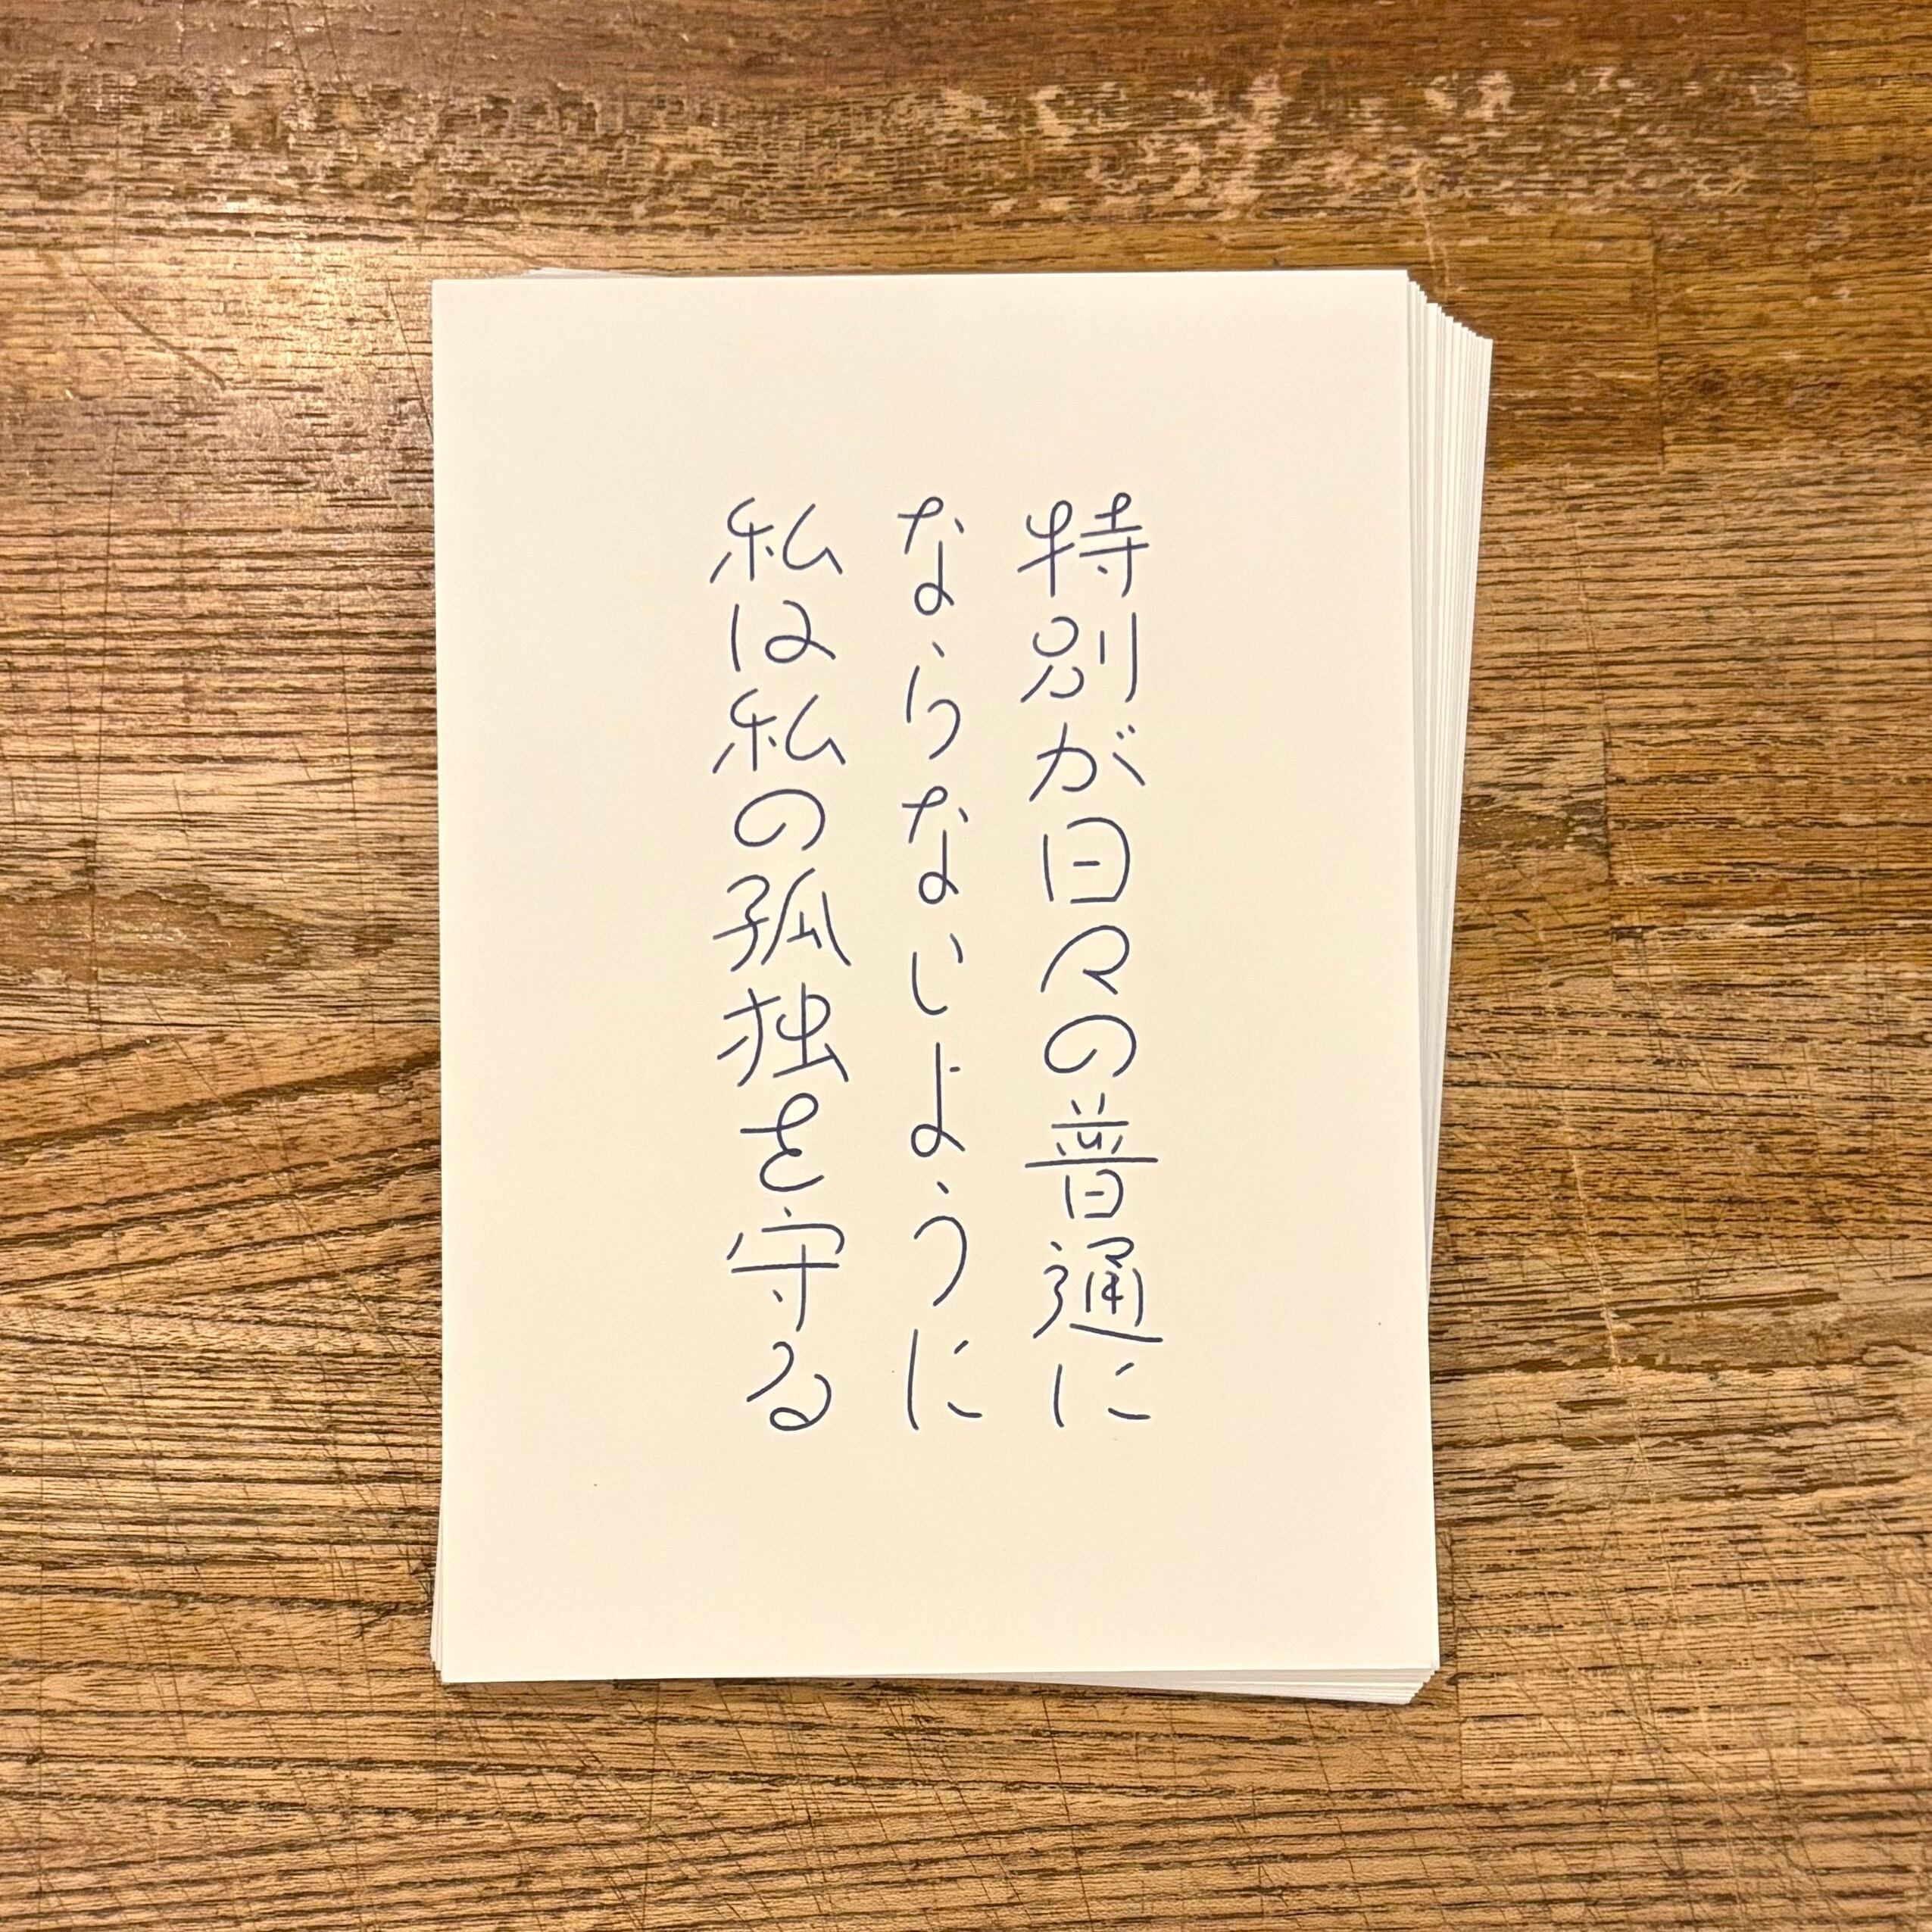 特別が日々の普通に
ならないように
私は私の孤独を守る